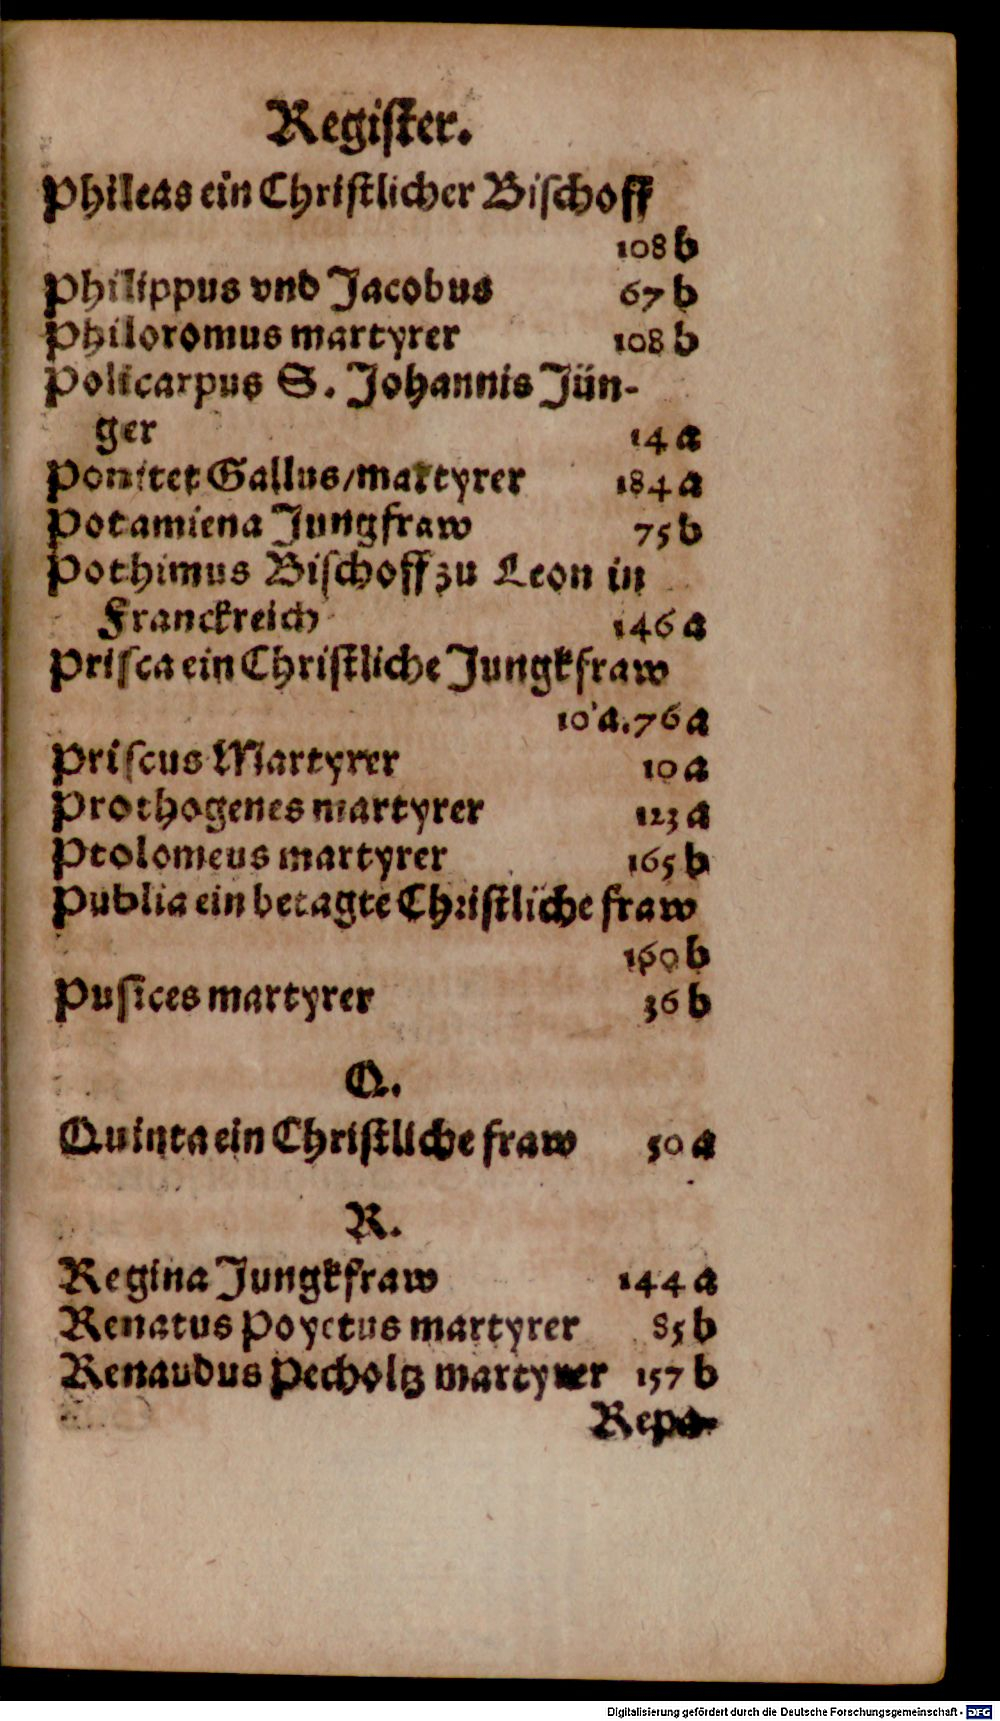 Regiſter.
Phileas ein Chriſtlicher Biſchoff
108 b
Philippus vnd Jacobus 67 b
Philoromus martyrer 108 b
Policarpus S. Johannis Jün-
ger 14 a
Ponitet Gallus/martyrer 184 a
Potamiena Jungfraw 75 b
Pothimus Biſchoff zu Leon in
Franckreich 146 a
Priſca ein Chriſtliche Jungkfraw
10 a. 76 a
Priſcus Martyrer 10 a
Prothogenes martyrer 123 a
Ptolomeus martyrer 165 b
Publia ein betagte Chriſtliche fraw
160 b
Puſices martyrer 36 b
Q.
Quinta ein Chriſtliche fraw 50 a
R.
Regina Jungkfraw 144 a
Renatus Poyetus martyrer 85 b
Renaudus Pecholtz martyrer 157 b
Repa-
Digitalisierung gefördert durch die Deutsche Forschungsgemeinschaft - DFG